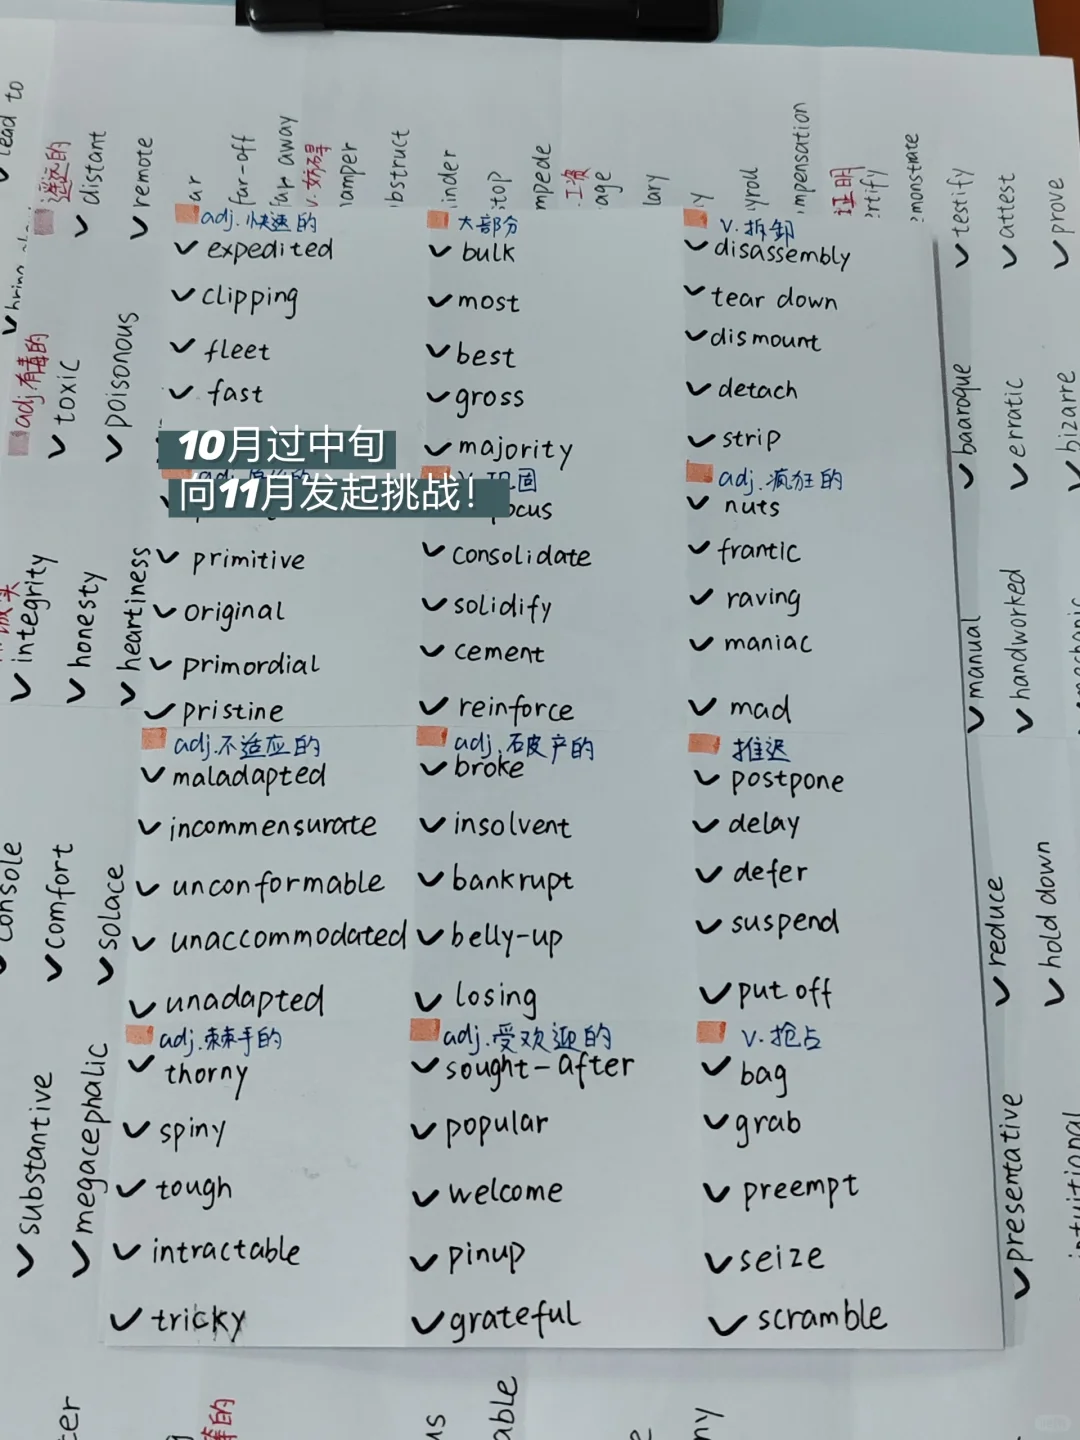 10月过中旬
向11月发起挑战！
adj.快速的
expedited
clipping
fleet
fast
primitive
original
primordial
pristine
adj.不适应的
maladapted
incommensurate
unconformable
unaccommodated
unadapted
adj.棘手的
thorny
spiny
tough
intractable
tricky
大部分
bulk
most
best
gross
majority
consolidate
solidify
cement
reinforce
adj.破产的
broke
insolvent
bankrupt
belly-up
losing
adj.受欢迎的
sought-after
popular
welcome
pinup
grateful
v.拆卸
disassembly
tear down
dismount
detach
strip
adj.疯狂的
nuts
frantic
raving
maniac
mad
推迟
postpone
delay
defer
suspend
put off
v.抢占
bag
grab
preempt
seize
scramble
lead to
遥远的
distant
remote
far-off
far away
v.妨碍
工资
证明
testify
attest
prove
adj.有毒的
toxic
poisonous
baaroque
erratic
bizarre
integrity
honesty
heartiness
manual
handworked
console
comfort
solace
reduce
hold down
substantive
megacephalic
presentative